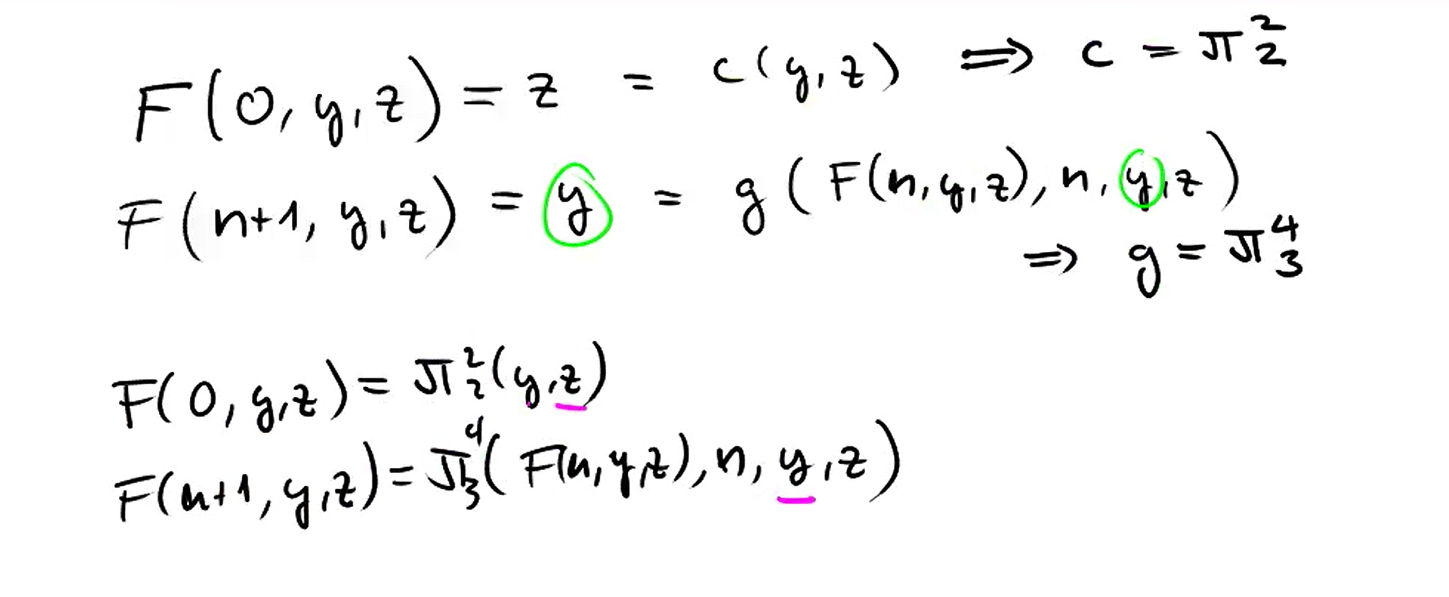 F(0, y, z) = z = c(y, z) ⟹ c = π²₂
F(n+1, y, z) = y = g(F(n, y, z), n, y, z)
⇒ g = π⁴₃
F(0, y, z) = π²₂(y, z)
F(n+1, y, z) = π⁴₃(F(n, y, z), n, y, z)